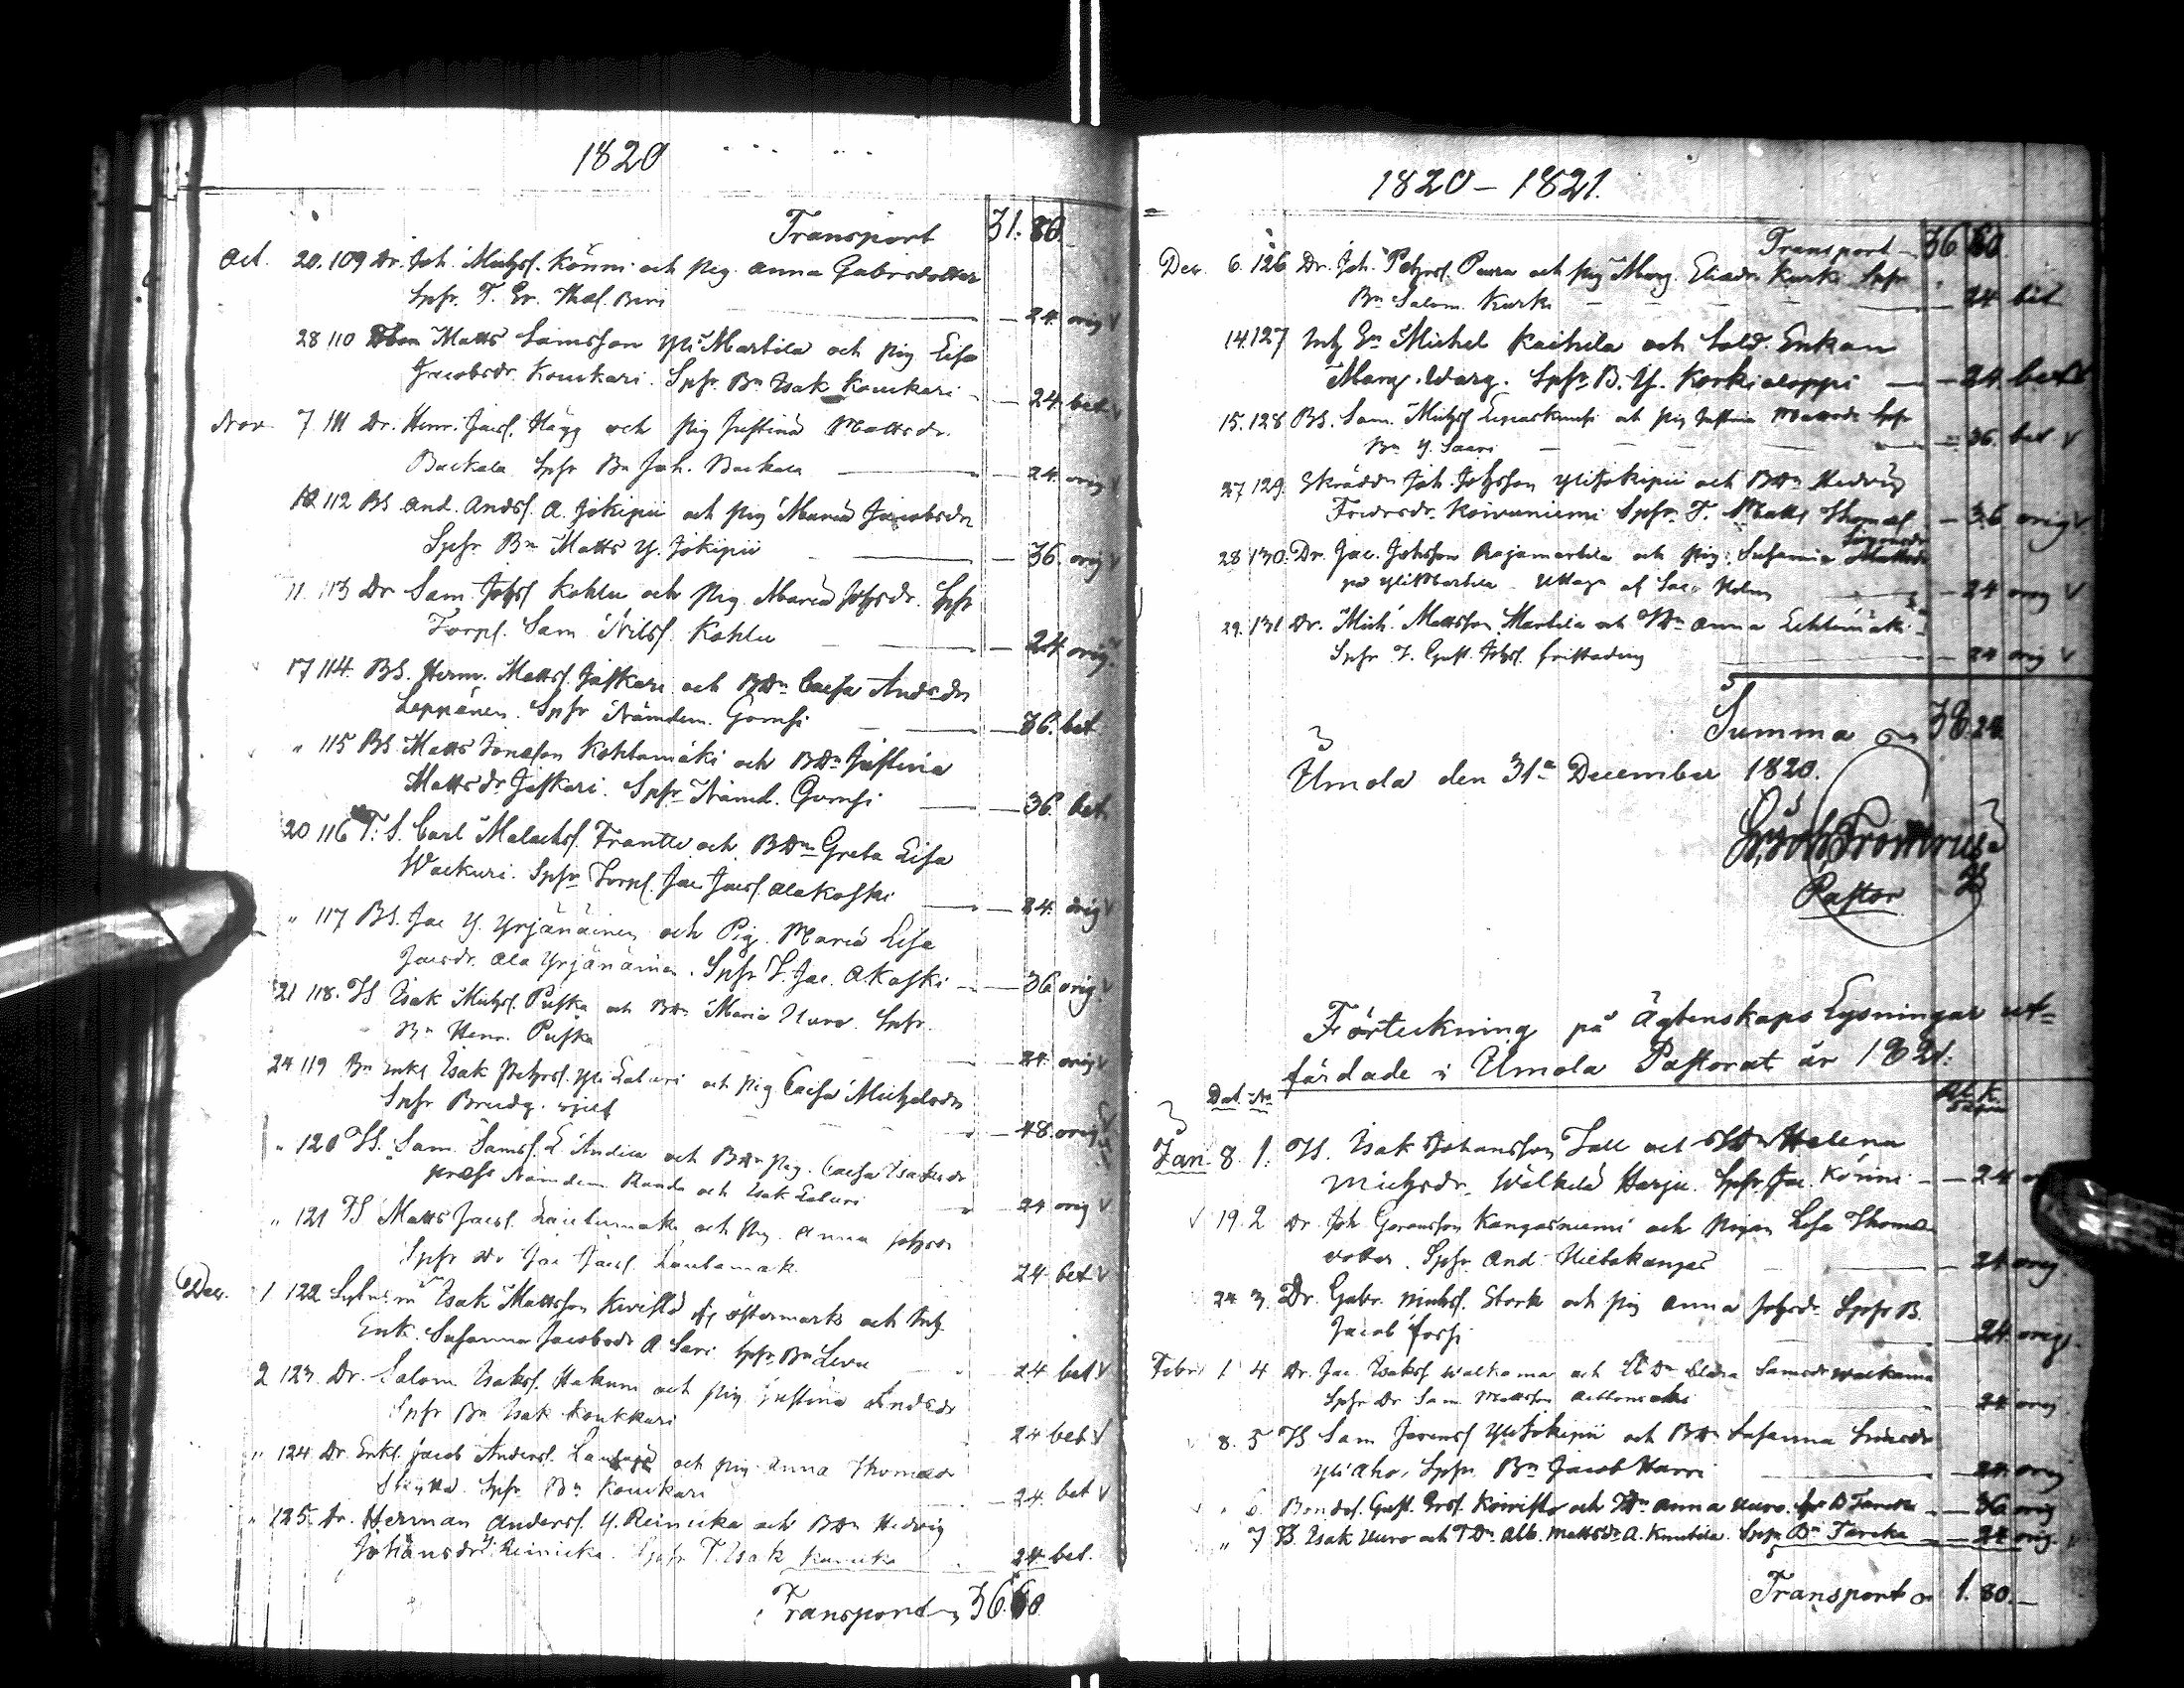 1820
Transport 31. 80.
Oct. 20. 109 Dr. Joh. Michzs. Könni och pig. Anna Gabrsdotter
Spfr. T. Er. Thos. 24. orig
28 110 Matts Samsson Yli Martila och pig Lisa
Jacobsdr. Koukkari. Spfr. Bn Isak Koukkari - 24. bet
Nov. 7 111 Dr. Henr. Jacs. Hägg och pig Justina Mattsdr.
Backala Spfr Bn Joh. Backala 24. orig
10 112 BS And. Ands. A. Jokipii och pig Maria Jacobsdr
Spfr Bn Matts Y. Jokipii 36. orig
11. 113 Dr Sam. Johs Kohlu och pig. Maria Johsdr. Spfr
Torp. Sam. Nils. Kohlu 24. orig.
17 114. BS. Herm. Matts. Jaskari och BDn Caisa Andsdr
Leppänen. Spfr Nämdem. Gomsi 36. bet
" 115 BS. Matts Jonasson Kohtamäki och BDn Justina
Mattsdr Jaskari. Spfr Nämd. Gomsi 36. bet
20 116 T. S. Carl Malachs. Frantti och BDn Greta Lisa
Wackuri. Spfr Torp. Jac Jacs. Alakoski 24. orig
" 117 BS. Jac Y. Yrjänäinen och Pig. Maria Lisa
Jacsdr. Ala Yrjänäinen. Spfr T. Jac. Akoski 36 orig.
21 118. TS Isak Michs. Puska och BDn Maria Uuro. Spfr.
Bn Henr. Puska 24. orig
24 119 Bn Enkl Isak Yli Laluri och pig Caisa Michelsdr
Spfr Brudg. sjelf 48. orig
" 120 TS. Sam. Sams. L. Andila och BDn pig. Caisa Isaksdr
Nämdem Randa och Isak Laluri 24 orig
" 121 TS Matts Jacs. Lautamäki och pig. Anna Johsdr
Spfr Dr Jac Jacs. Lautamäk. 24 bet
Dec. 1 122 Isak Mattsson Kivistö fr Östermark och Inh.
Enk. Susanna Jacobsdr A. Sari Spfr Bn 24 bet
2 123 Dr. Salom. Isaks. Hakuni och pig Justina Andsdr
Spfr Bn Isak Koukkari 24 bet
" 124 Dr. Enkl. Jacob Anders. och pig Anna Thomasdr
Spfr Bn Koukkari 24. bet
" 125. Dr. Herrman Anders. Y. Reinicka och BDn Hedvig
Johansdr Y. Reinicka. Spfr T. Isak 24. bet.
Transport 36. 60
1820 - 1821.
Transport 36 60
Dec. 6. 126 Dr. Joh. Petrs. Purra och pig Marg. Eliædr. Kurki Spfr
Bn Salom. Kurki 24 bet
14. 127 Inh Gn Michel Kaihila och Sold. Enkan
Marg. Warg. Spfr B. Y. Korkialoppi 24. bet
15. 128 BS. Sam. Michs och pig Justina Mattsdr Spfr
Bn Y. Saari 36. bet
27 129. Skräddr Joh. Johsson Ylijokipii och BDn Hedvig
Fredrsdr. Koivuniemi Spfr. T. Matts Thomas. 36 orig
28 130. Dr. Jac. Johsson Rajamartila och pig. Susanna Mattsdr
på Yli Martila. Uttagn af Sac. Holm 24 orig
29. 131 Dr. Mich. Mattsson Martila och TDn Anna Lehtimäki
Spfr. T. Gust. Johs. 24 orig
Summa 38. 24.
Ilmola den 31a December 1820.
Pastor
Förteckning på Ägtenskaps Lysningar ut=
färdade i Ilmola Pastorat år 1821.
Dat. No Rb. K.
Jan. 8. 1. TS. Isak Johansson Jall och TDn Helena
Michsdr. Wälkilä Harju. Spfr. Jac. Könni 24
19. 2 Dr. Joh Göransson Kangasniemi och pigan Lisa Thomæ
dotter. Spfr. And. Hietakangas 24 orig
24 3. Dr. Gabr. Michs. Stork och pig Anna Johsdr. Spfr B.
Jacob Jossi 24. orig.
Febr. 1 4 Dr. Jac. Isaks. Walkama och TDn Clara Samsdr Walkama
Spfr Dr Sam Mattsson 24 orig
8. 5 TS Sam Jörans. Ylijokipii och BDn Susanna
Yli Aho, Spfr Bn Jacob Harri 24 orig
" 6. Bondes. Gust. Ers. Koivisto och TDn Anna Uuro. Spfr B 36 orig
" 7 TS. Isak Uuro och TDn Alb. Mattsdr A. Knuutila. Spfr Bn 24 orig.
Transport 1. 80.